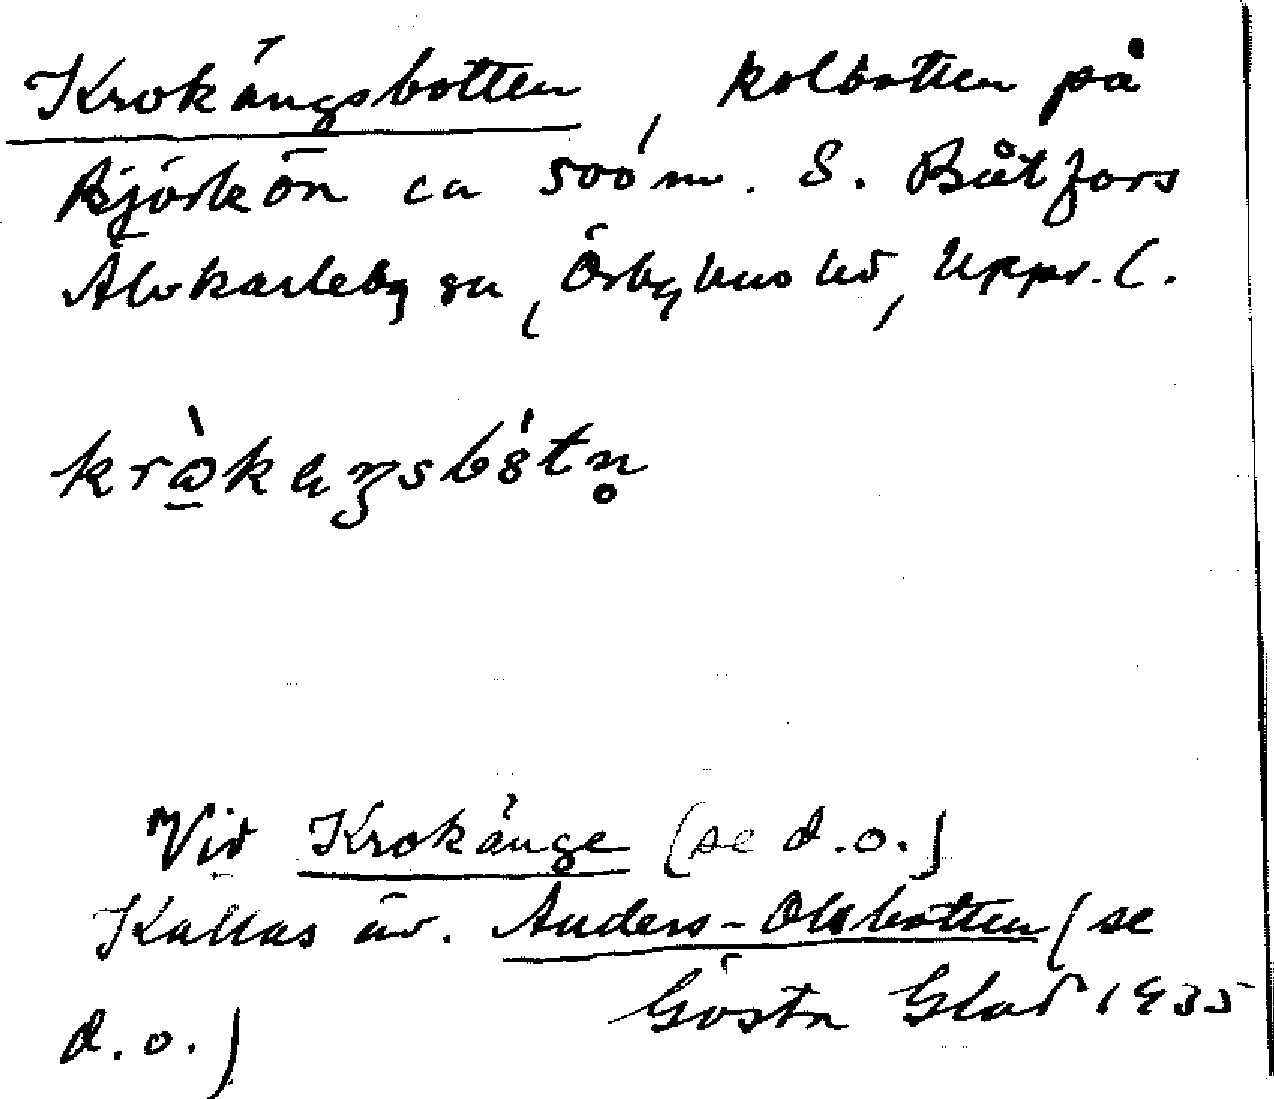 Krokängsbotten, kolbotten på
Björkön ca 500 m. S. Båtfors
Älvkarleby sn, Örbyhus hd, Upps. l.
krɷ̀kąŋsbȣ́tn̥
Vid Krokänge (se d.o.)
Kallas äv. Anders-Olsbotten (se
d.o.)
Gösta Glad 1935